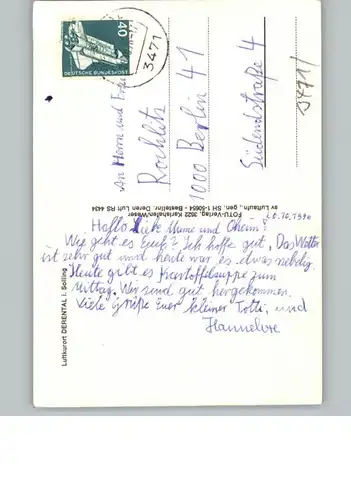 40
DEUTSCHE BUNDESPOST
3471
An Herrn und Frau
Rochlitz
1000 Berlin 41
Südendstraße 4
3471/
FOTO-Verlag, 3522 Karlshafen/Weser
av Luftaufn., gen. SH 1-50654 - Bestellnr. Deren Luft RS 4434
Luftkurort DERENTAL i. Solling
Hallo Liebe Mume und Oheim!
Wie geht es Euch? Ich hoffe gut. Das Wetter
ist sehr gut und heute war es etwas nebelig.
Heute gibt es Kartoffelsuppe zum
Mittag. Wir sind gut hergekommen.
Viele Grüße Euer kleiner Totti, und
Hannelore